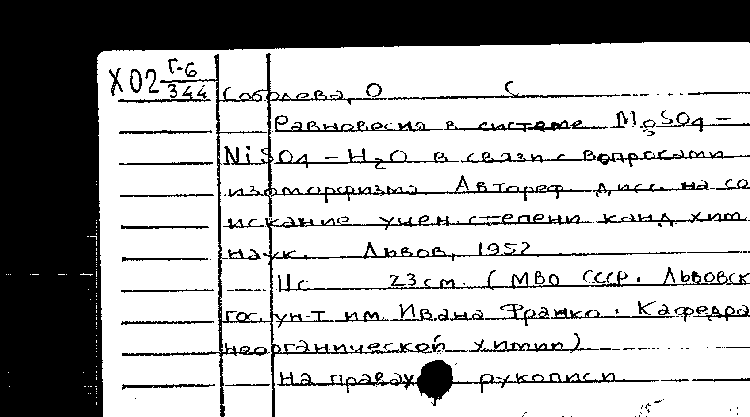 Х02 Г-6
344
Соболева, О С
Равновесия в системе MgSO4 –
NiSO4 – H2O в связи с вопросами
изоморфизма Автореф. дисс. на со
искание учен. степени канд хим
наук. Львов, 1952
11с 23см. (МВО СССР. Львовск
гос. ун-т им Ивана Франко. Кафедра
неорганической химии)
На правах рукописи